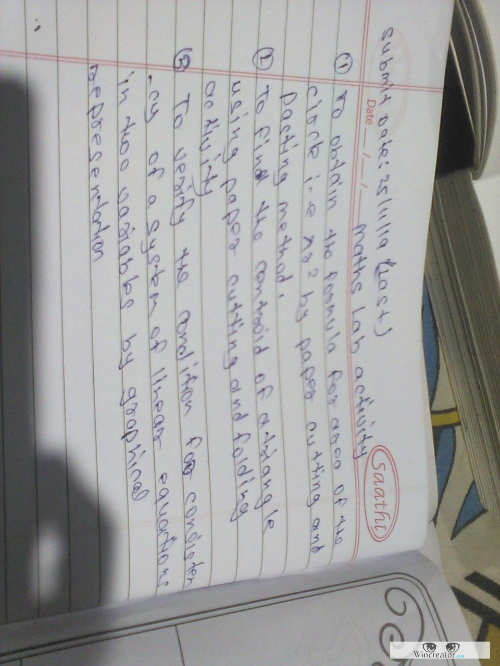 Submit date: 25/11/19 (Last)
Saathi
Date __/__/__ Maths Lab activity
① To obtain the formula for area of the
circle i-e πr² by paper cutting and
Pasting method.
② To find the centroid of a triangle
using paper cutting and folding
activity
③ To verify the condition for consisten
-cy of a system of linear equations
in two variables by graphical
representation
Wincreator.com